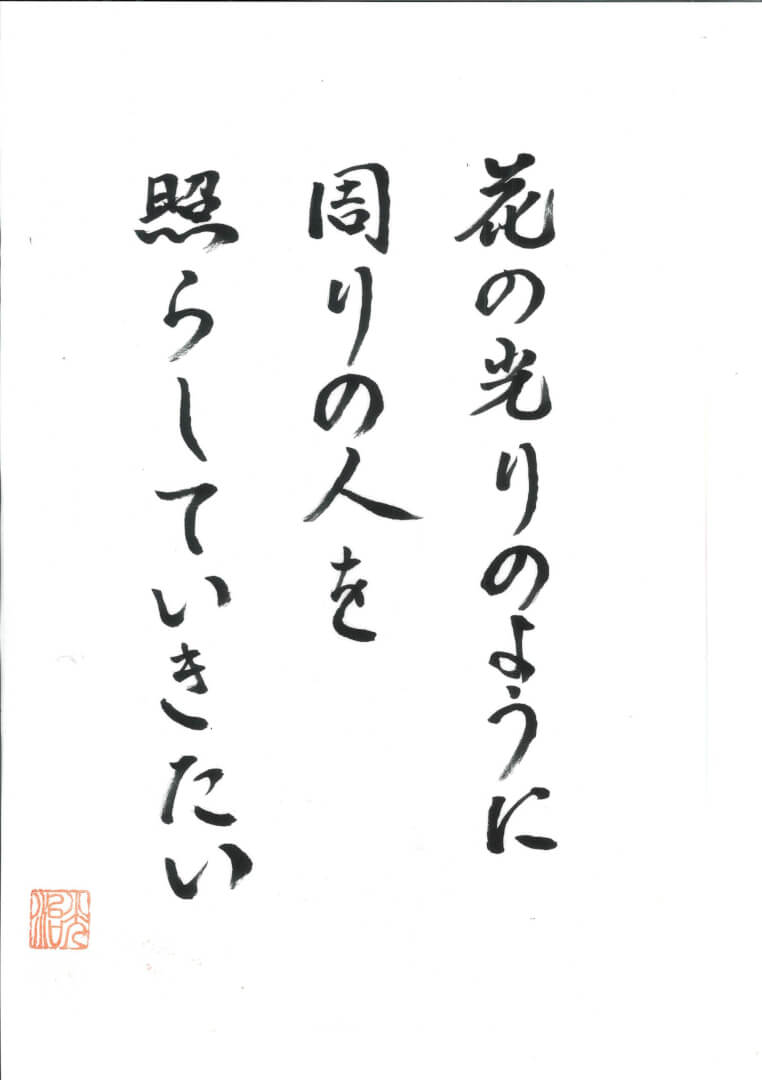 花の光りのように
周りの人を
照らしていきたい